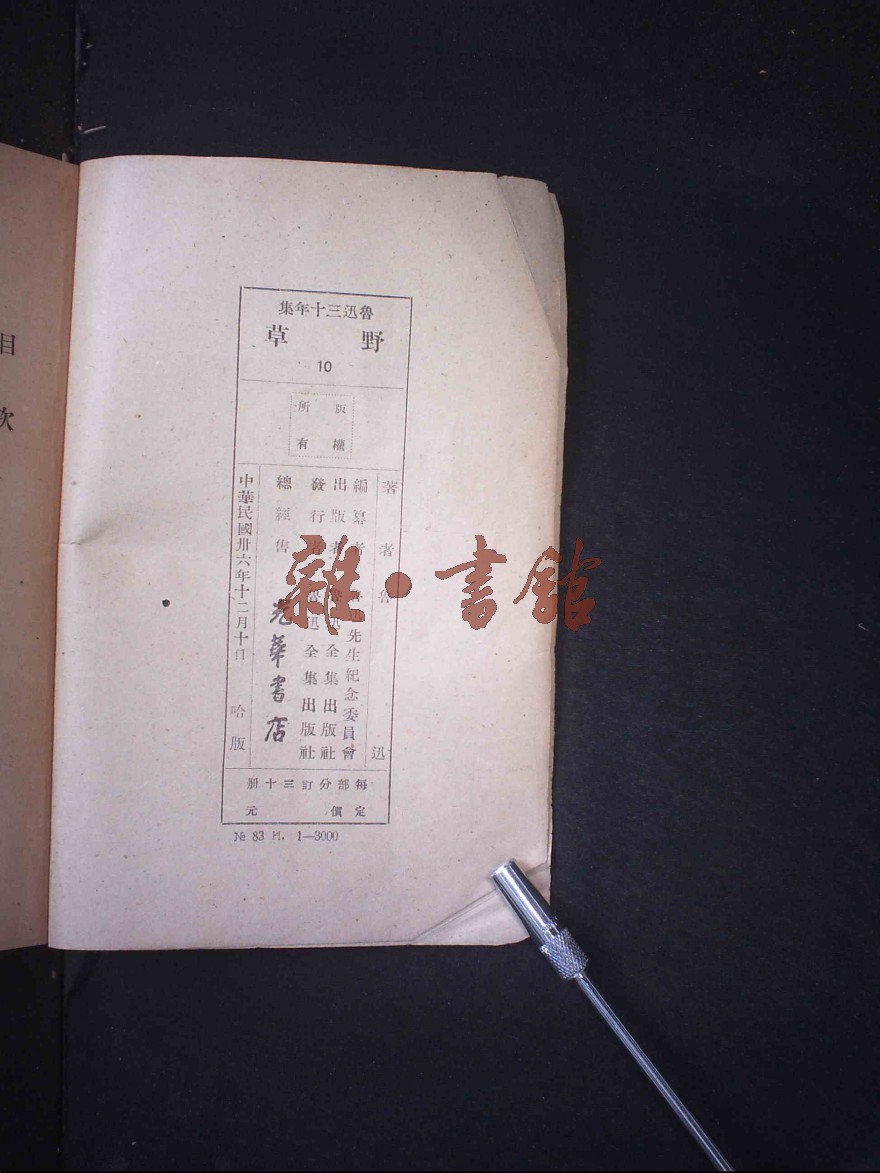 魯迅三十年集
野草
10
版權所有
著者 魯迅
編纂者 魯迅先生紀念委員會
出版者 魯迅全集出版社
發行者 魯迅全集出版社
總經售 光華書店
中華民國卅六年十二月十日 哈版
每部分訂三十冊
定價 元
№ 83 H. 1—3000
目次
雜·書館